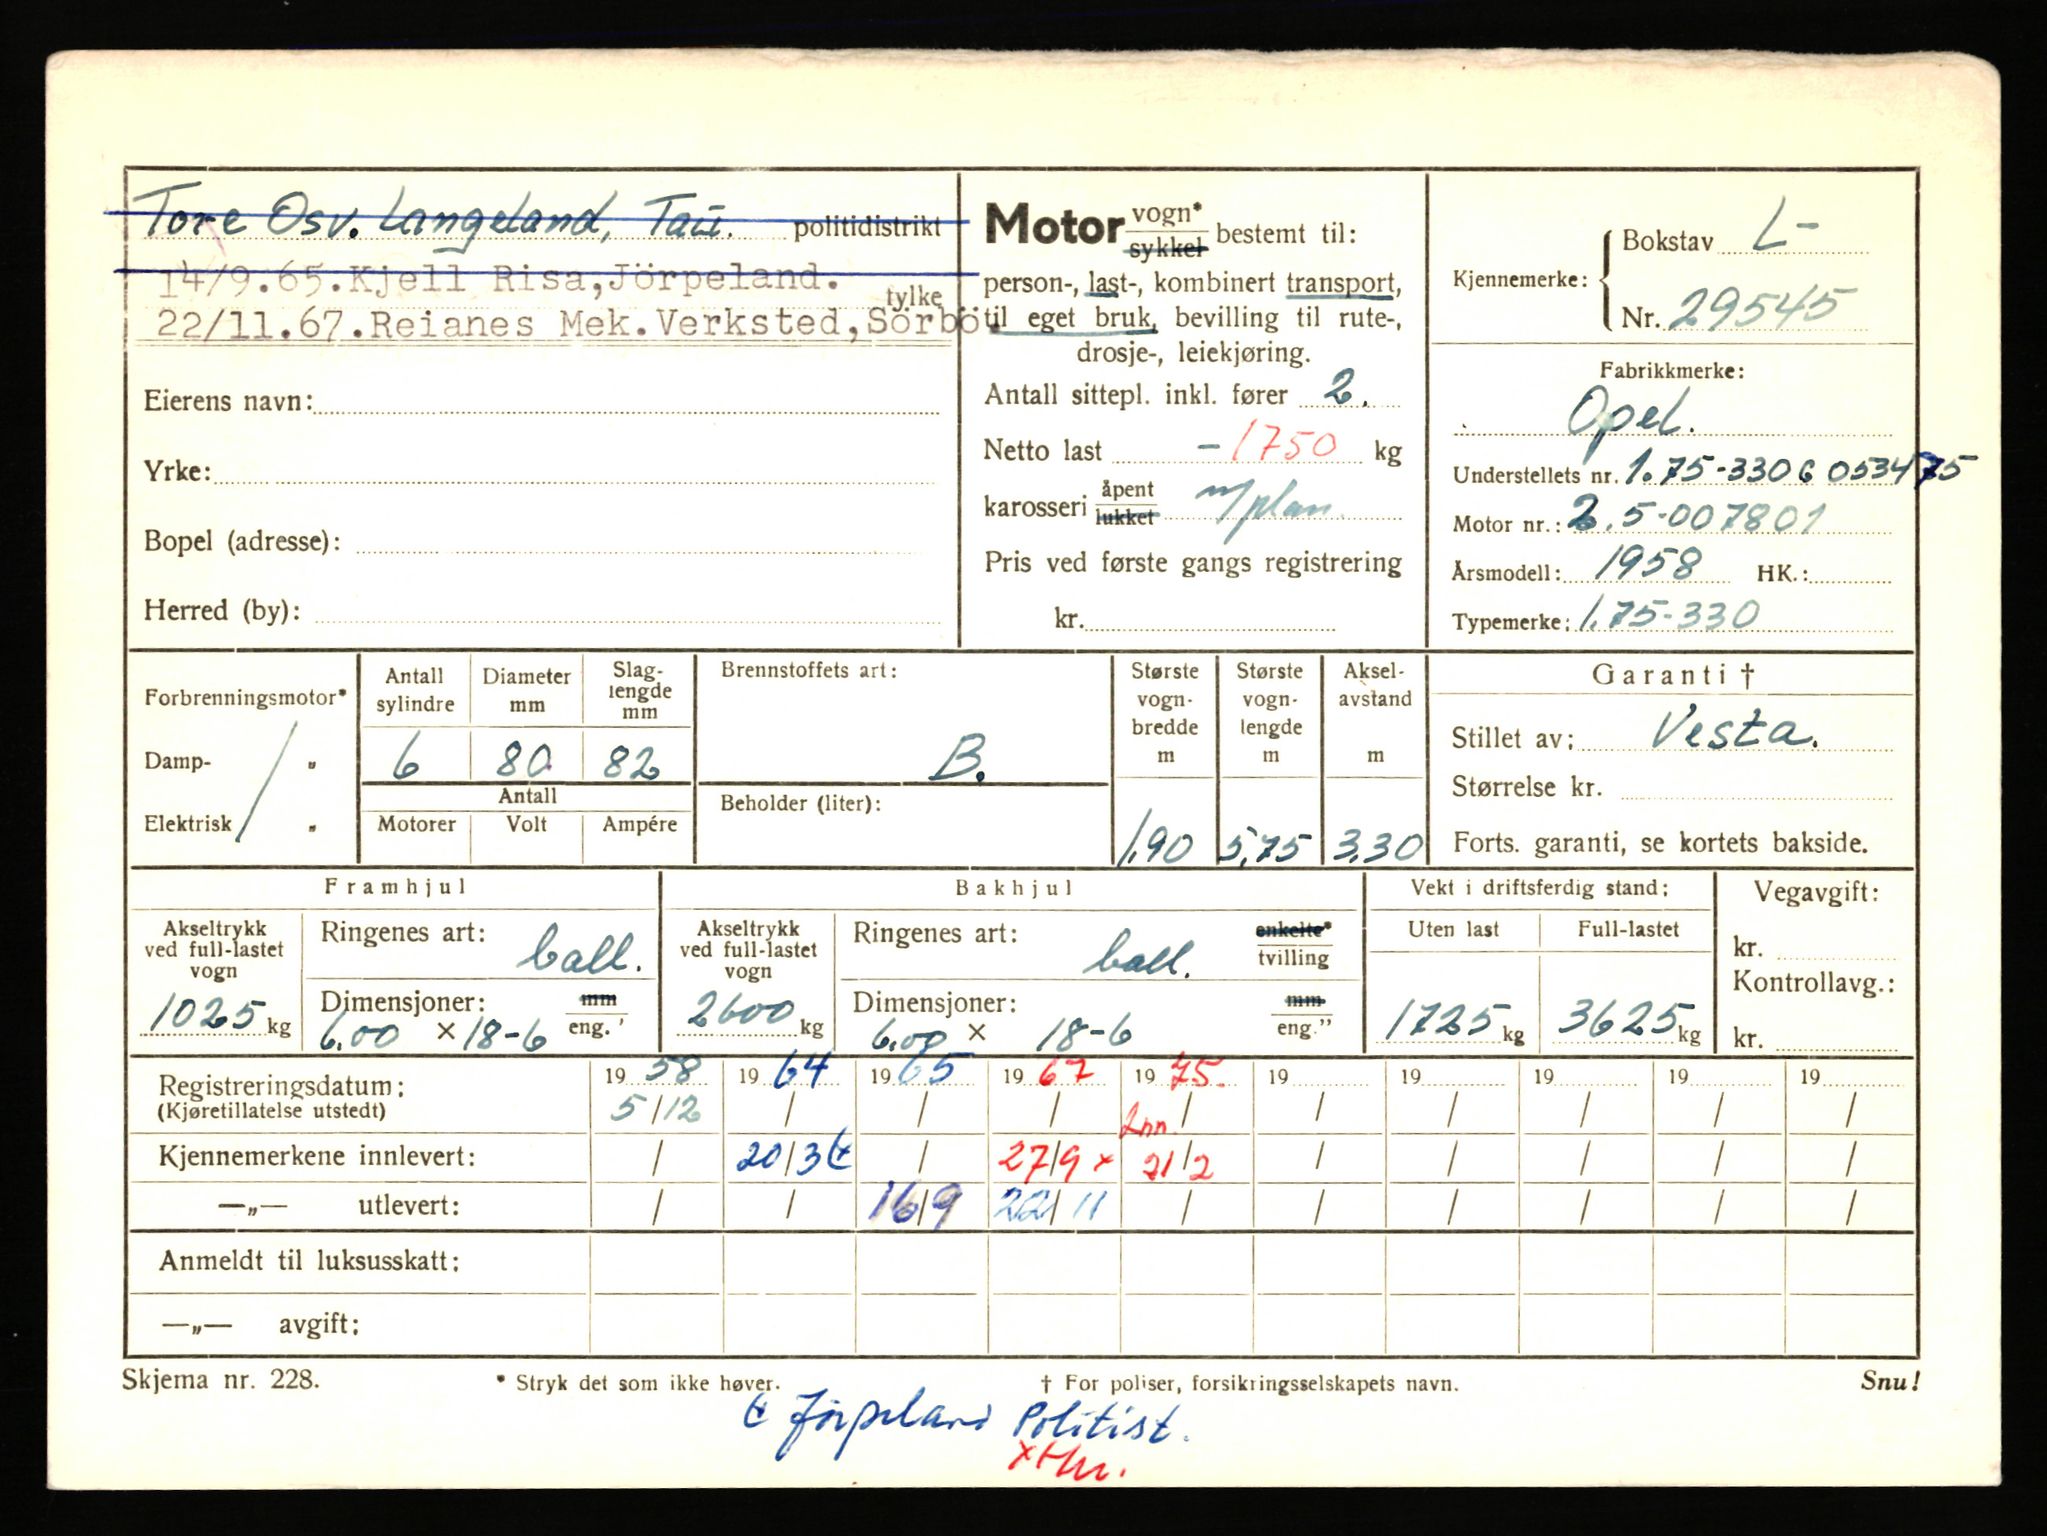 Tore Osv. Langeland, Tau. politidistrikt
14/9.65.Kjell Risa,Jörpeland.
fylke
22/11.67.Reianes Mek.Verksted,Sörbö.
Eierens navn:
Yrke:
Bopel (adresse):
Herred (by):
Motor vogn* sykkel bestemt til:
person-, last-, kombinert transport,
til eget bruk, bevilling til rute-,
drosje-, leiekjøring.
Antall sittepl. inkl. fører 2.
Netto last - 1750 kg
karosseri åpent lukket m/plan
Pris ved første gangs registrering
kr.
Kjennemerke: Bokstav L-
Nr. 29545
Fabrikkmerke:
Opel.
Understellets nr. 1.75-330 G 053475
Motor nr.: 2.5-007801
Årsmodell: 1958 HK.:
Typemerke: 1.75-330
Forbrenningsmotor*
Damp- "
Elektrisk "
Antall sylindre Diameter mm Slaglengde mm
6 80 82
Antall
Motorer Volt Ampére
Brennstoffets art:
B.
Beholder (liter):
Største vognbredde m Største vognlengde m Akselavstand m
1,90 5,75 3,30
Garanti †
Stillet av: Vesta.
Størrelse kr.
Forts. garanti, se kortets bakside.
Framhjul
Akseltrykk ved full-lastet vogn
1025 kg
Ringenes art: ball.
Dimensjoner: mm eng."
6.00 × 18-6
Bakhjul
Akseltrykk ved full-lastet vogn
2600 kg
Ringenes art: ball. enkelte* tvilling
Dimensjoner: mm eng."
6.00 × 18-6
Vekt i driftsferdig stand:
Uten last Full-lastet
1725 kg 3625 kg
Vegavgift:
kr.
Kontrollavg.:
kr.
Registreringsdatum: 19 58 19 64 19 65 19 67 19 75. 19 19 19 19 19
(Kjøretillatelse utstedt) 5/12 / / / / / / / / /
Inn.
Kjennemerkene innlevert: / 20/3 / 27/9 × 21/2 / / / / /
—„— utlevert: / / 16/9 22/11 / / / / / /
Anmeldt til luksusskatt:
—„— avgift:
Skjema nr. 228. * Stryk det som ikke høver. † For poliser, forsikringsselskapets navn. Snu!
Jörpeland Politist.